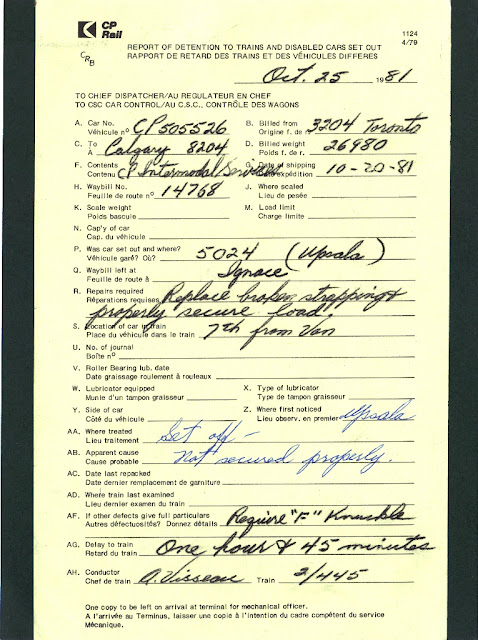 CP Rail
1124
4/79
CRB
REPORT OF DETENTION TO TRAINS AND DISABLED CARS SET OUT
RAPPORT DE RETARD DES TRAINS ET DES VÉHICULES DIFFERES
Oct. 25 1981
TO CHIEF DISPATCHER/AU REGULATEUR EN CHEF
TO CSC CAR CONTROL/AU C.S.C., CONTRÔLE DES WAGONS
A. Car No. B. Billed from
Véhicule nº CP 505526 Origine f. de r. 3204 Toronto
C. To D. Billed weight
À Calgary 8204 Poids f. de r. 26980
F. Contents G. Date of shipping
Contenu CP Intermodal Services d'expédition 10-20-81
H. Waybill No. J. Where scaled
Feuille de route nº 14768 Lieu de pesée
K. Scale weight M. Load limit
Poids bascule Charge limite
N. Cap'y of car
Cap. du véhicule
P. Was car set out and where?
Véhicule garé? Où? 5024 (Upsala)
Q. Waybill left at
Feuille de route à Ignace
R. Repairs required
Réparations requises Replace broken strapping &
properly secure load.
S. Location of car in train
Place du véhicule dans le train 7th from Van
U. No. of journal
Boîte nº
V. Roller Bearing lub. date
Date graissage roulement à rouleaux
W. Lubricator equipped X. Type of lubricator
Munie d'un tampon graisseur Type de tampon graisseur
Y. Side of car Z. Where first noticed
Côté du véhicule Lieu observ. en premier Upsala
AA. Where treated
Lieu traitement Set off -
AB. Apparent cause
Cause probable Not secured properly.
AC. Date last repacked
Date dernier remplacement de garniture
AD. Where train last examined
Lieu dernier examen du train
AF. If other defects give full particulars
Autres défectuosités? Donnez détails Require "F" Knuckle
AG. Delay to train
Retard du train One hour & 45 minutes
AH. Conductor
Chef de train A. Visseau Train 2/445
One copy to be left on arrival at terminal for mechanical officer.
A l'arrivée au Terminus, laisser une copie à l'intention du cadre compétent du service
Mécanique.